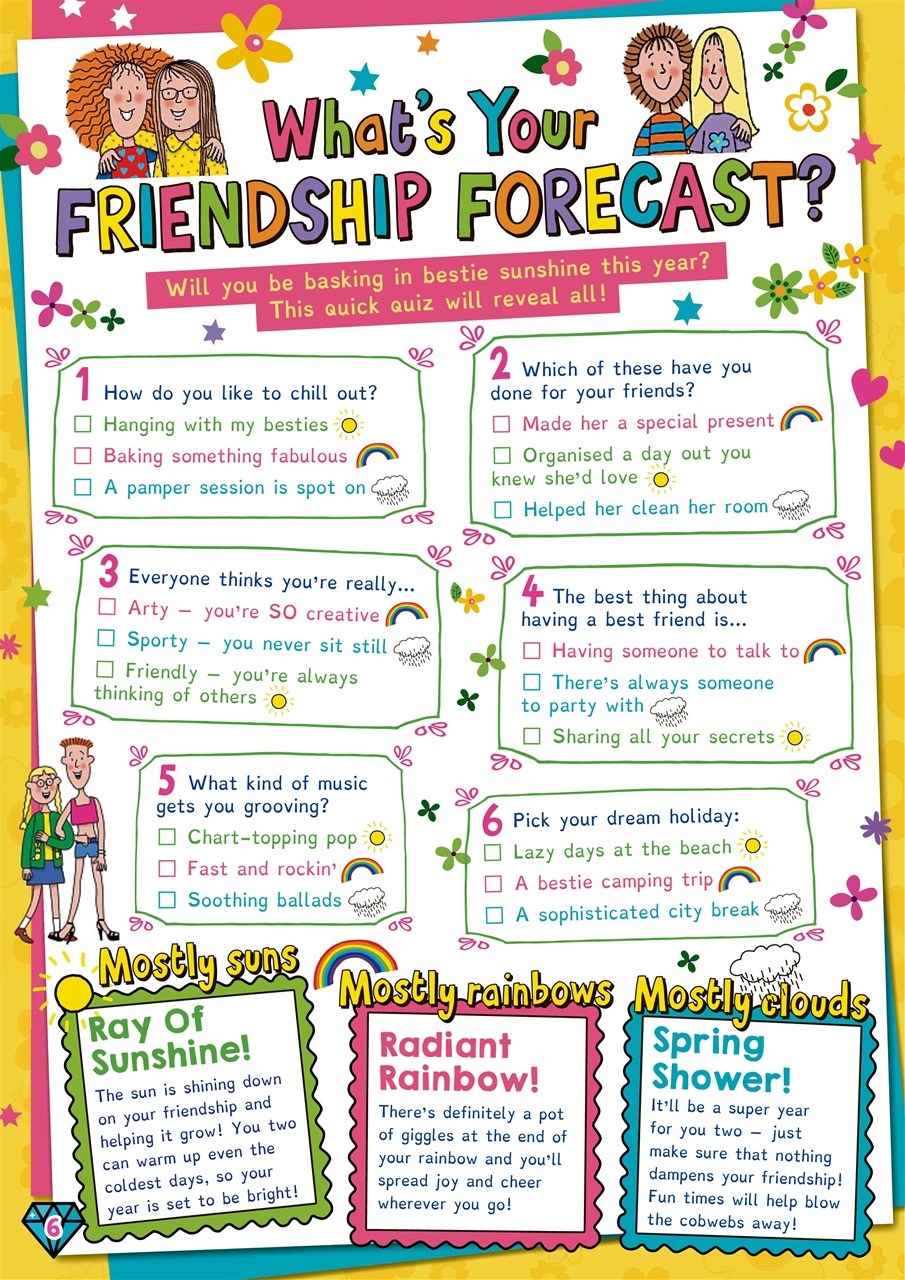 What's Your
FRIENDSHIP FORECAST?
Will you be basking in bestie sunshine this year?
This quick quiz will reveal all!
1 How do you like to chill out?
Hanging with my besties
Baking something fabulous
A pamper session is spot on
2 Which of these have you
done for your friends?
Made her a special present
Organised a day out you
knew she'd love
Helped her clean her room
3 Everyone thinks you're really...
Arty – you're SO creative
Sporty – you never sit still
Friendly – you're always
thinking of others
4 The best thing about
having a best friend is...
Having someone to talk to
There's always someone
to party with
Sharing all your secrets
5 What kind of music
gets you grooving?
Chart-topping pop
Fast and rockin'
Soothing ballads
6 Pick your dream holiday:
Lazy days at the beach
A bestie camping trip
A sophisticated city break
Mostly suns
Ray Of
Sunshine!
The sun is shining down
on your friendship and
helping it grow! You two
can warm up even the
coldest days, so your
year is set to be bright!
Mostly rainbows
Radiant
Rainbow!
There's definitely a pot
of giggles at the end of
your rainbow and you'll
spread joy and cheer
wherever you go!
Mostly clouds
Spring
Shower!
It'll be a super year
for you two – just
make sure that nothing
dampens your friendship!
Fun times will help blow
the cobwebs away!
6